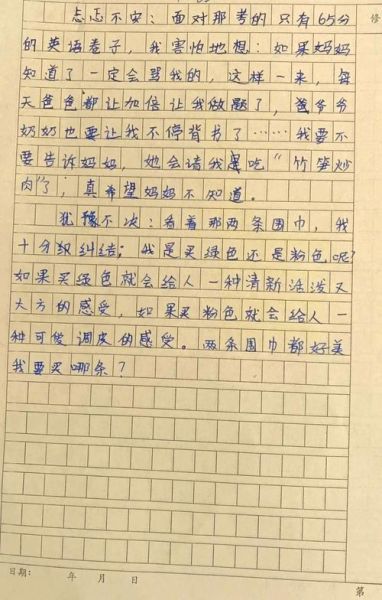 忐忑不安：面对那考的只有65分
的英语卷子，我害怕地想：如果妈妈
知道了一定会骂我的，这样一来，每
天爸爸都让加倍让我做题了，爸爷爷
奶奶也要让我不停背书了……我要不
要告诉妈妈，她会请我吃“竹笋炒
肉”了，真希望妈妈不知道。
犹豫不决：看着那两条围巾，我
十分纠结；我是买绿色还是粉色呢？
如果买绿色就会给人一种清新活泼又
大方的感受，如果买粉色就会给人一
种可爱调皮的感受。两条围巾都好美
我要买哪条？
日期： 年 月 日
第